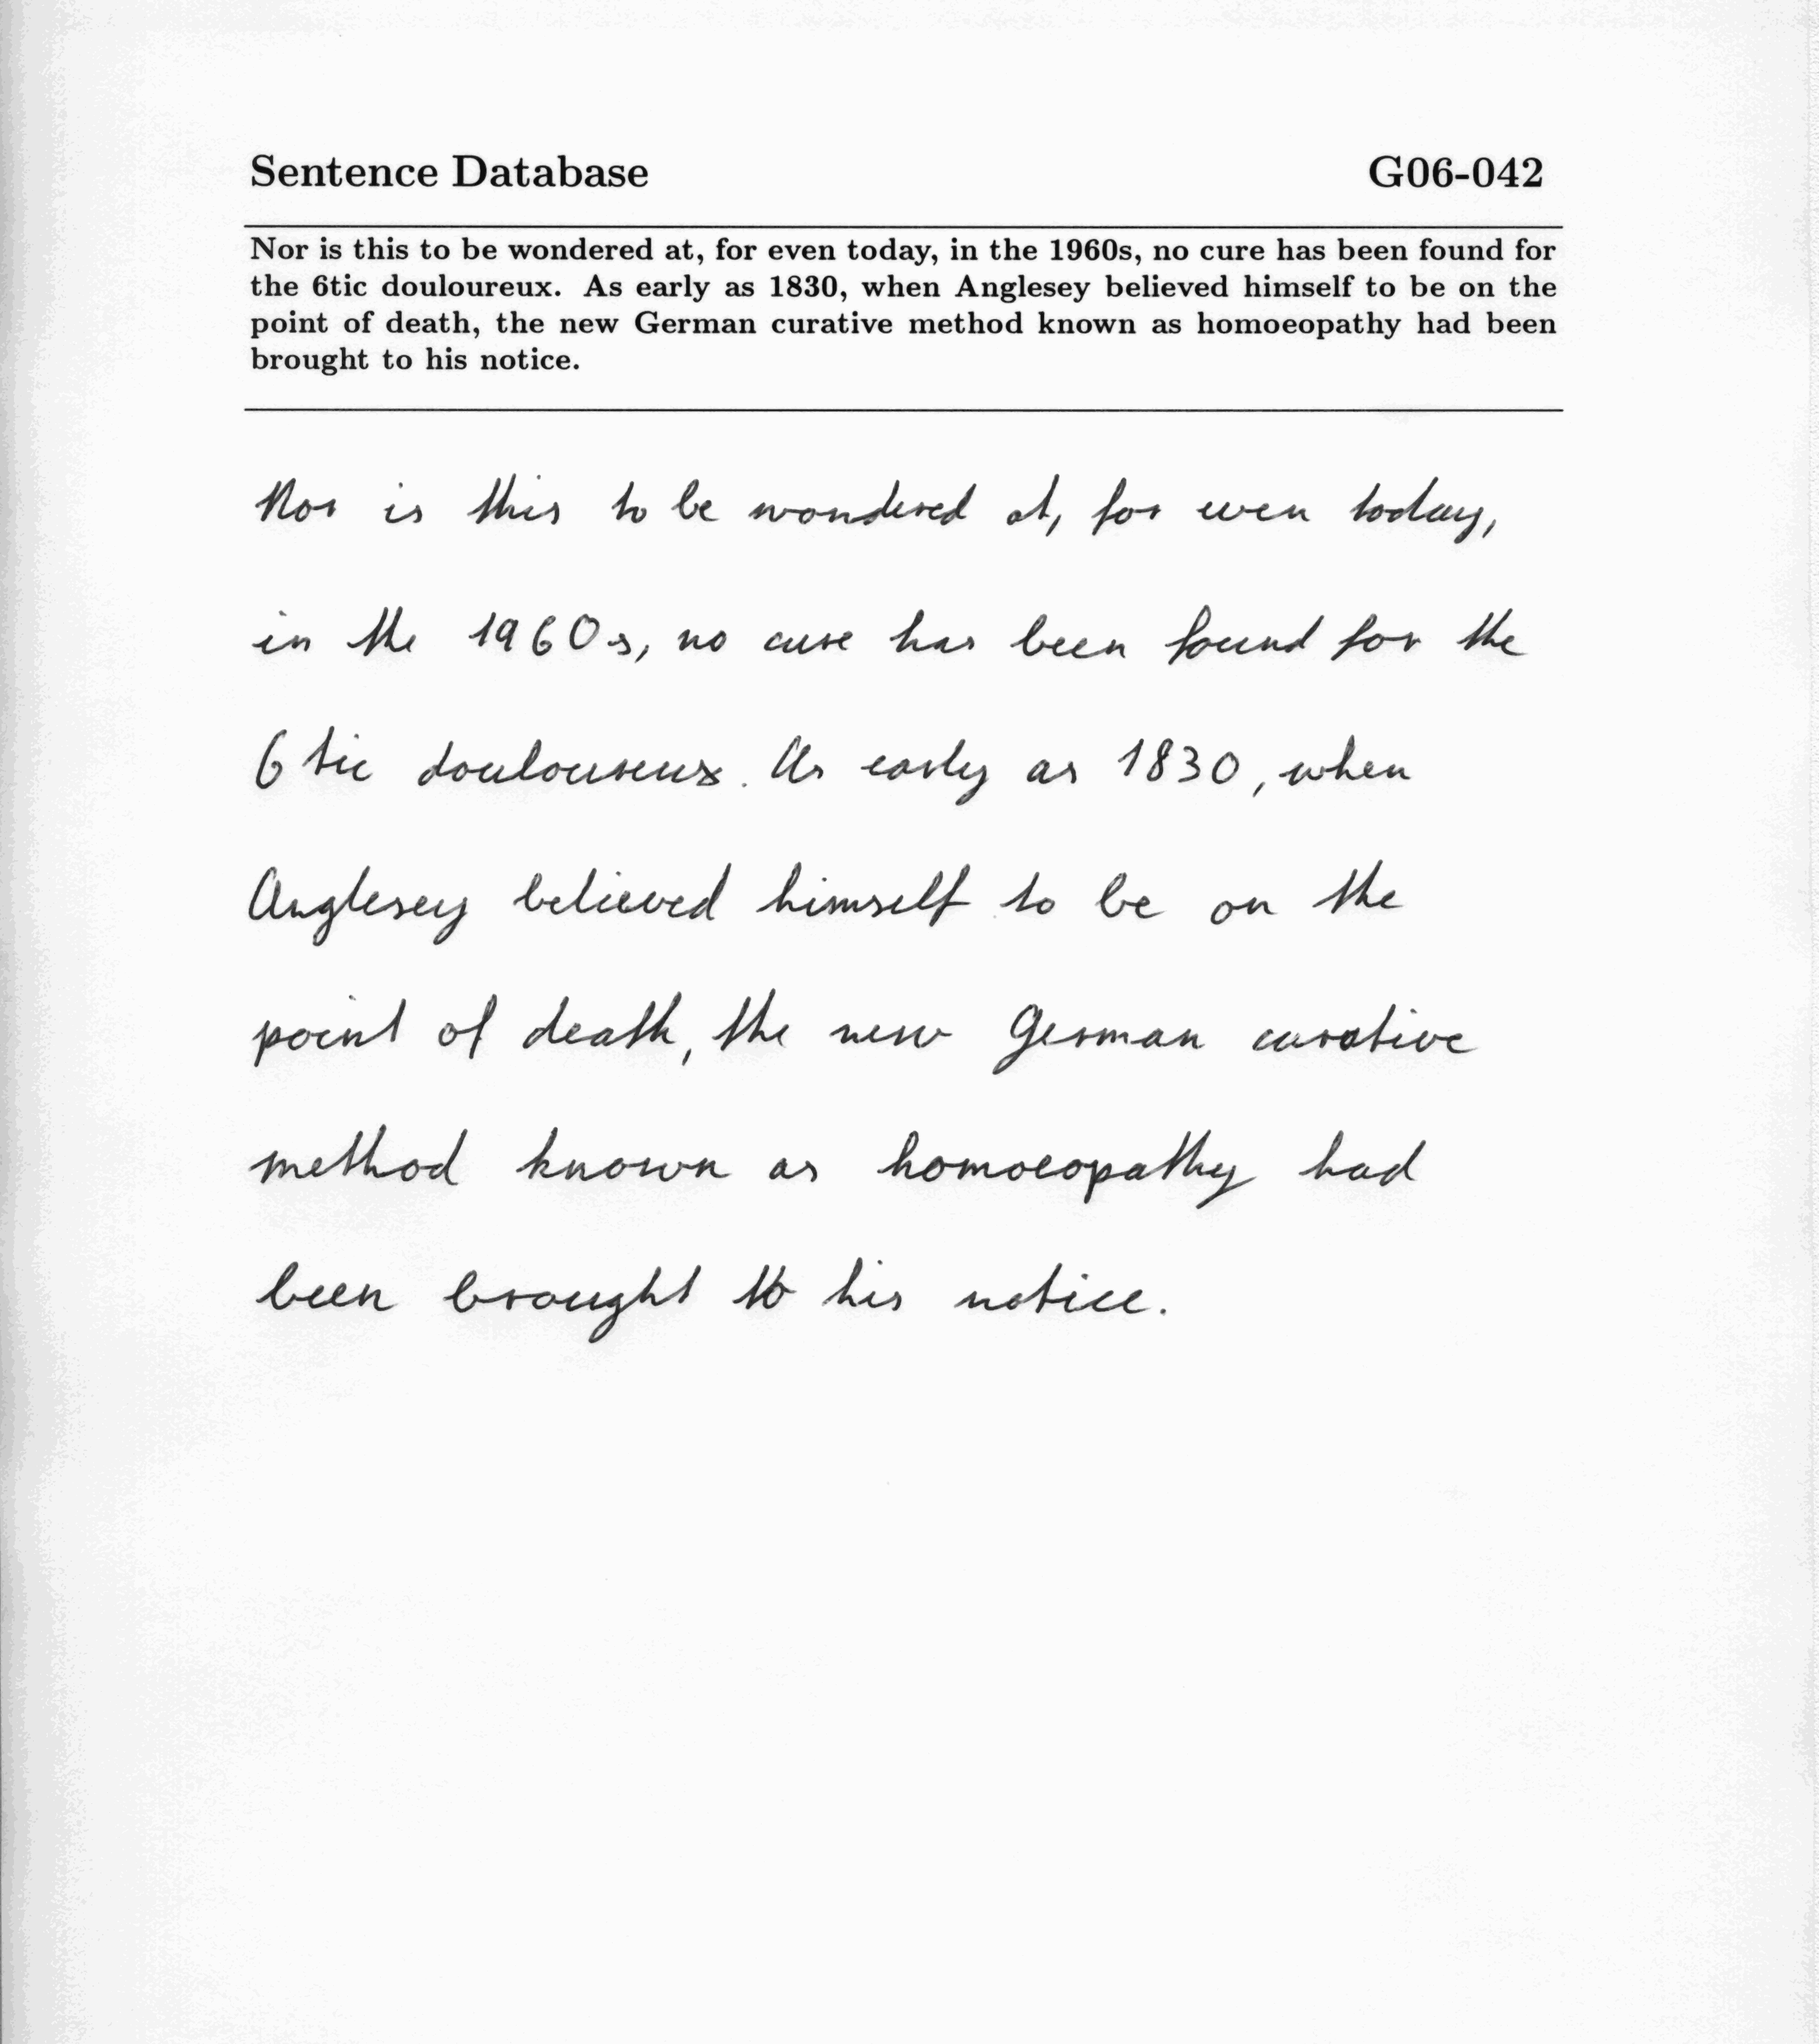 Sentence Database G06-042
Nor is this to be wondered at, for even today, in the 1960s, no cure has been found for
the 6tic douloureux. As early as 1830, when Anglesey believed himself to be on the
point of death, the new German curative method known as homoeopathy had been
brought to his notice.
Nor is this to be wondered at, for even today,
in the 1960s, no cure has been found for the
6 tic douloureux. As early as 1830, when
Anglesey believed himself to be on the
point of death, the new German curative
method known as homoeopathy had
been brought to his notice.